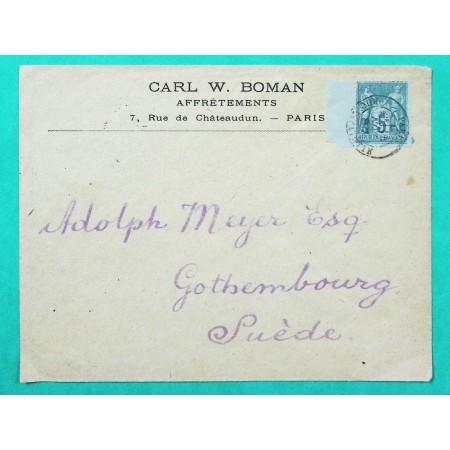 CARL W. BOMAN
AFFRÉTEMENTS
7, Rue de Châteaudun. — PARIS
5
Adolph Meyer Esq.
Gothembourg
Suède.